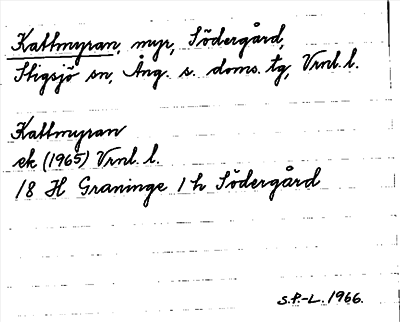 Kattmyran, myr, Södergård,
Stigsjö sn, Ång. s. doms. tg, Vrnl. l.
Kattmyran
ek (1965) Vrnl. l.
18 H Graninge 1 h Södergård
S.P.-L. 1966.